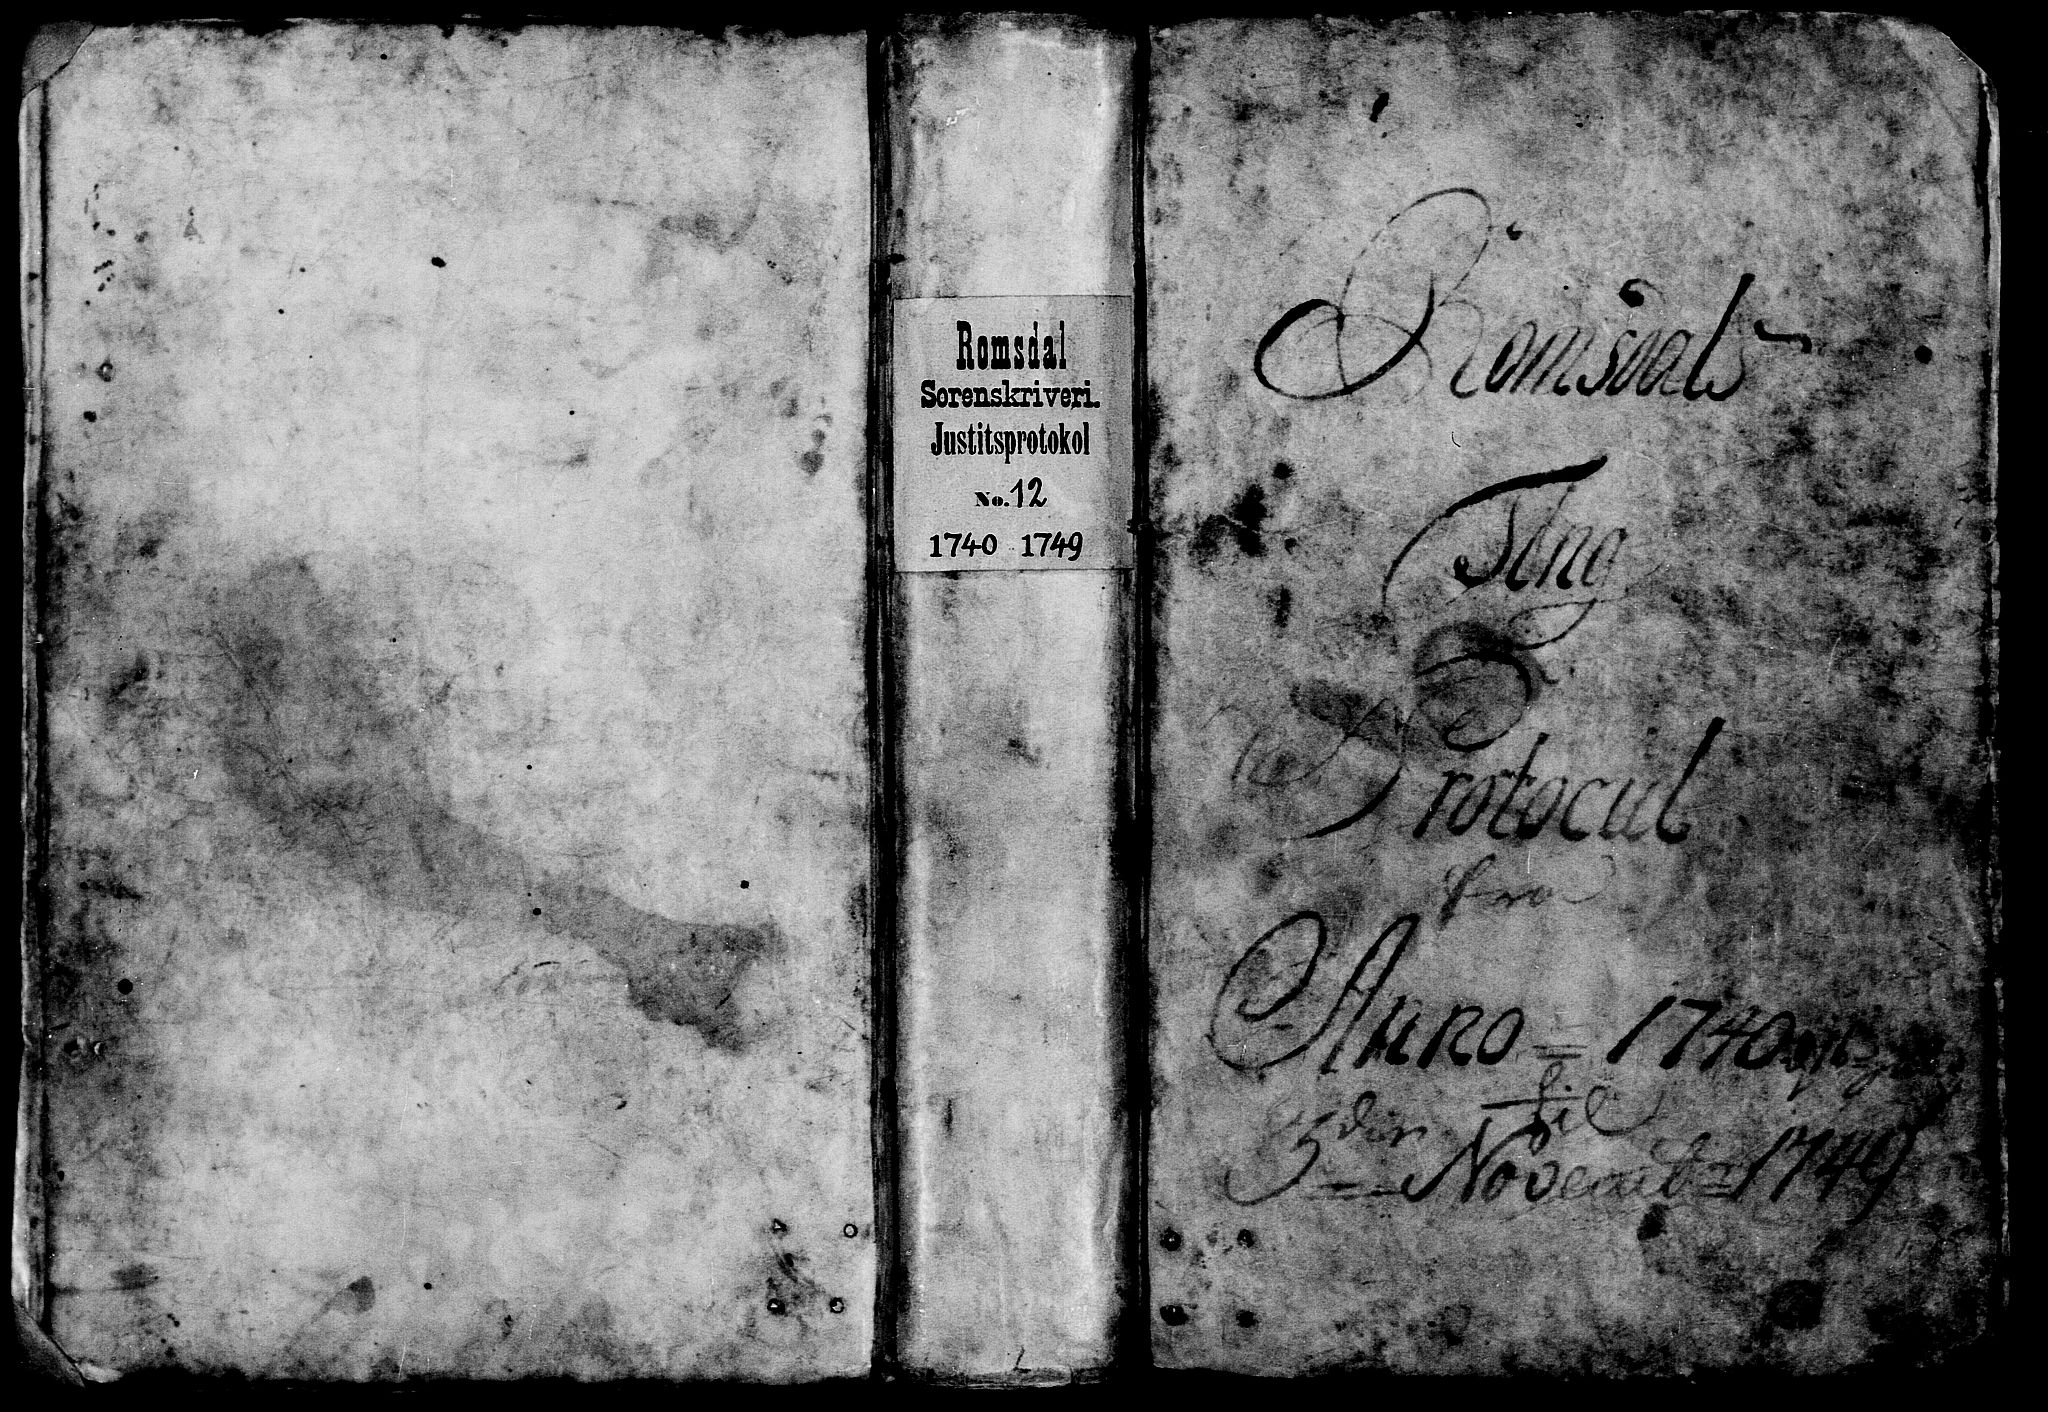 Romsdal
Sorenskriveri.
Justitsprotokol
No. 12
1740 1749
Romsdals
Ting
Protocul
fra
Anno = 1740
til
5 den Novemb = 1749